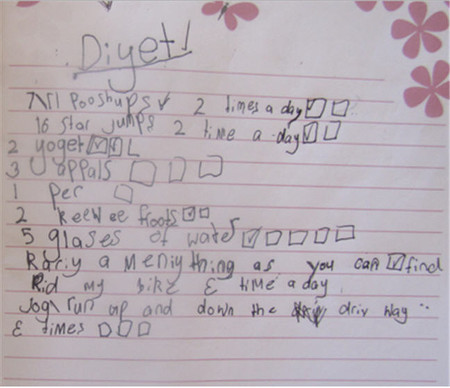 Diyet!
Pooshups 2 times a day
16 star jumps 2 time a day
2 yoget
3 appals
1 per
2 keewee froots
5 glases of water
Rariy a meniything as you can find
Rid my bike 3 time a day
Jog\run up and down the driv way
3 times